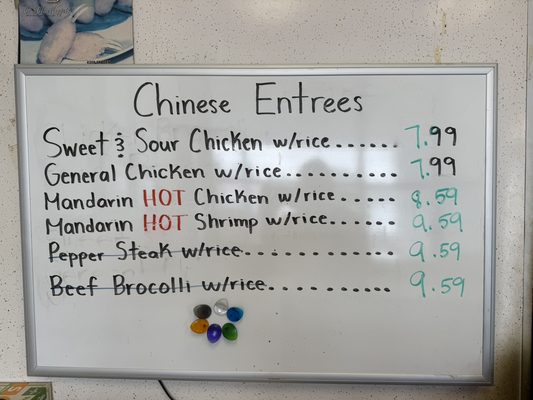 Chinese Entrees
Sweet & Sour Chicken w/rice...... 7.99
General Chicken w/rice.......... 7.99
Mandarin HOT Chicken w/rice..... 8.59
Mandarin HOT Shrimp w/rice...... 9.59
Pepper Steak w/rice............. 9.59
Beef Brocolli w/rice........... 9.59